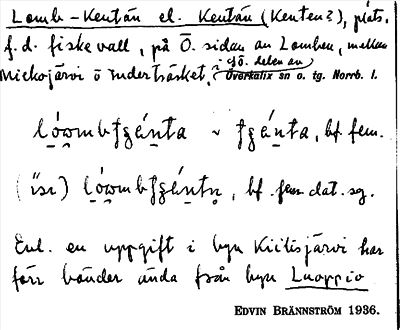 Lomb-Kentän el. Kentän (Kenten?), plats,
f.d. fiskevall, på Ö. sidan av Lomben, mellan
Miekojärvi o Inderträsket, i sö. delen av
Överkalix sn o. tg. Norrb. l.
lóombʃgánta ~ ʃgánta, bf. fem.
(isr) lóombʃgántn, bf. fem dat. sg.
Enl. en uppgift i byn Kiilisjärvi har
förr bönder ända från byn Luoppio
EDVIN BRÄNNSTRÖM 1936.